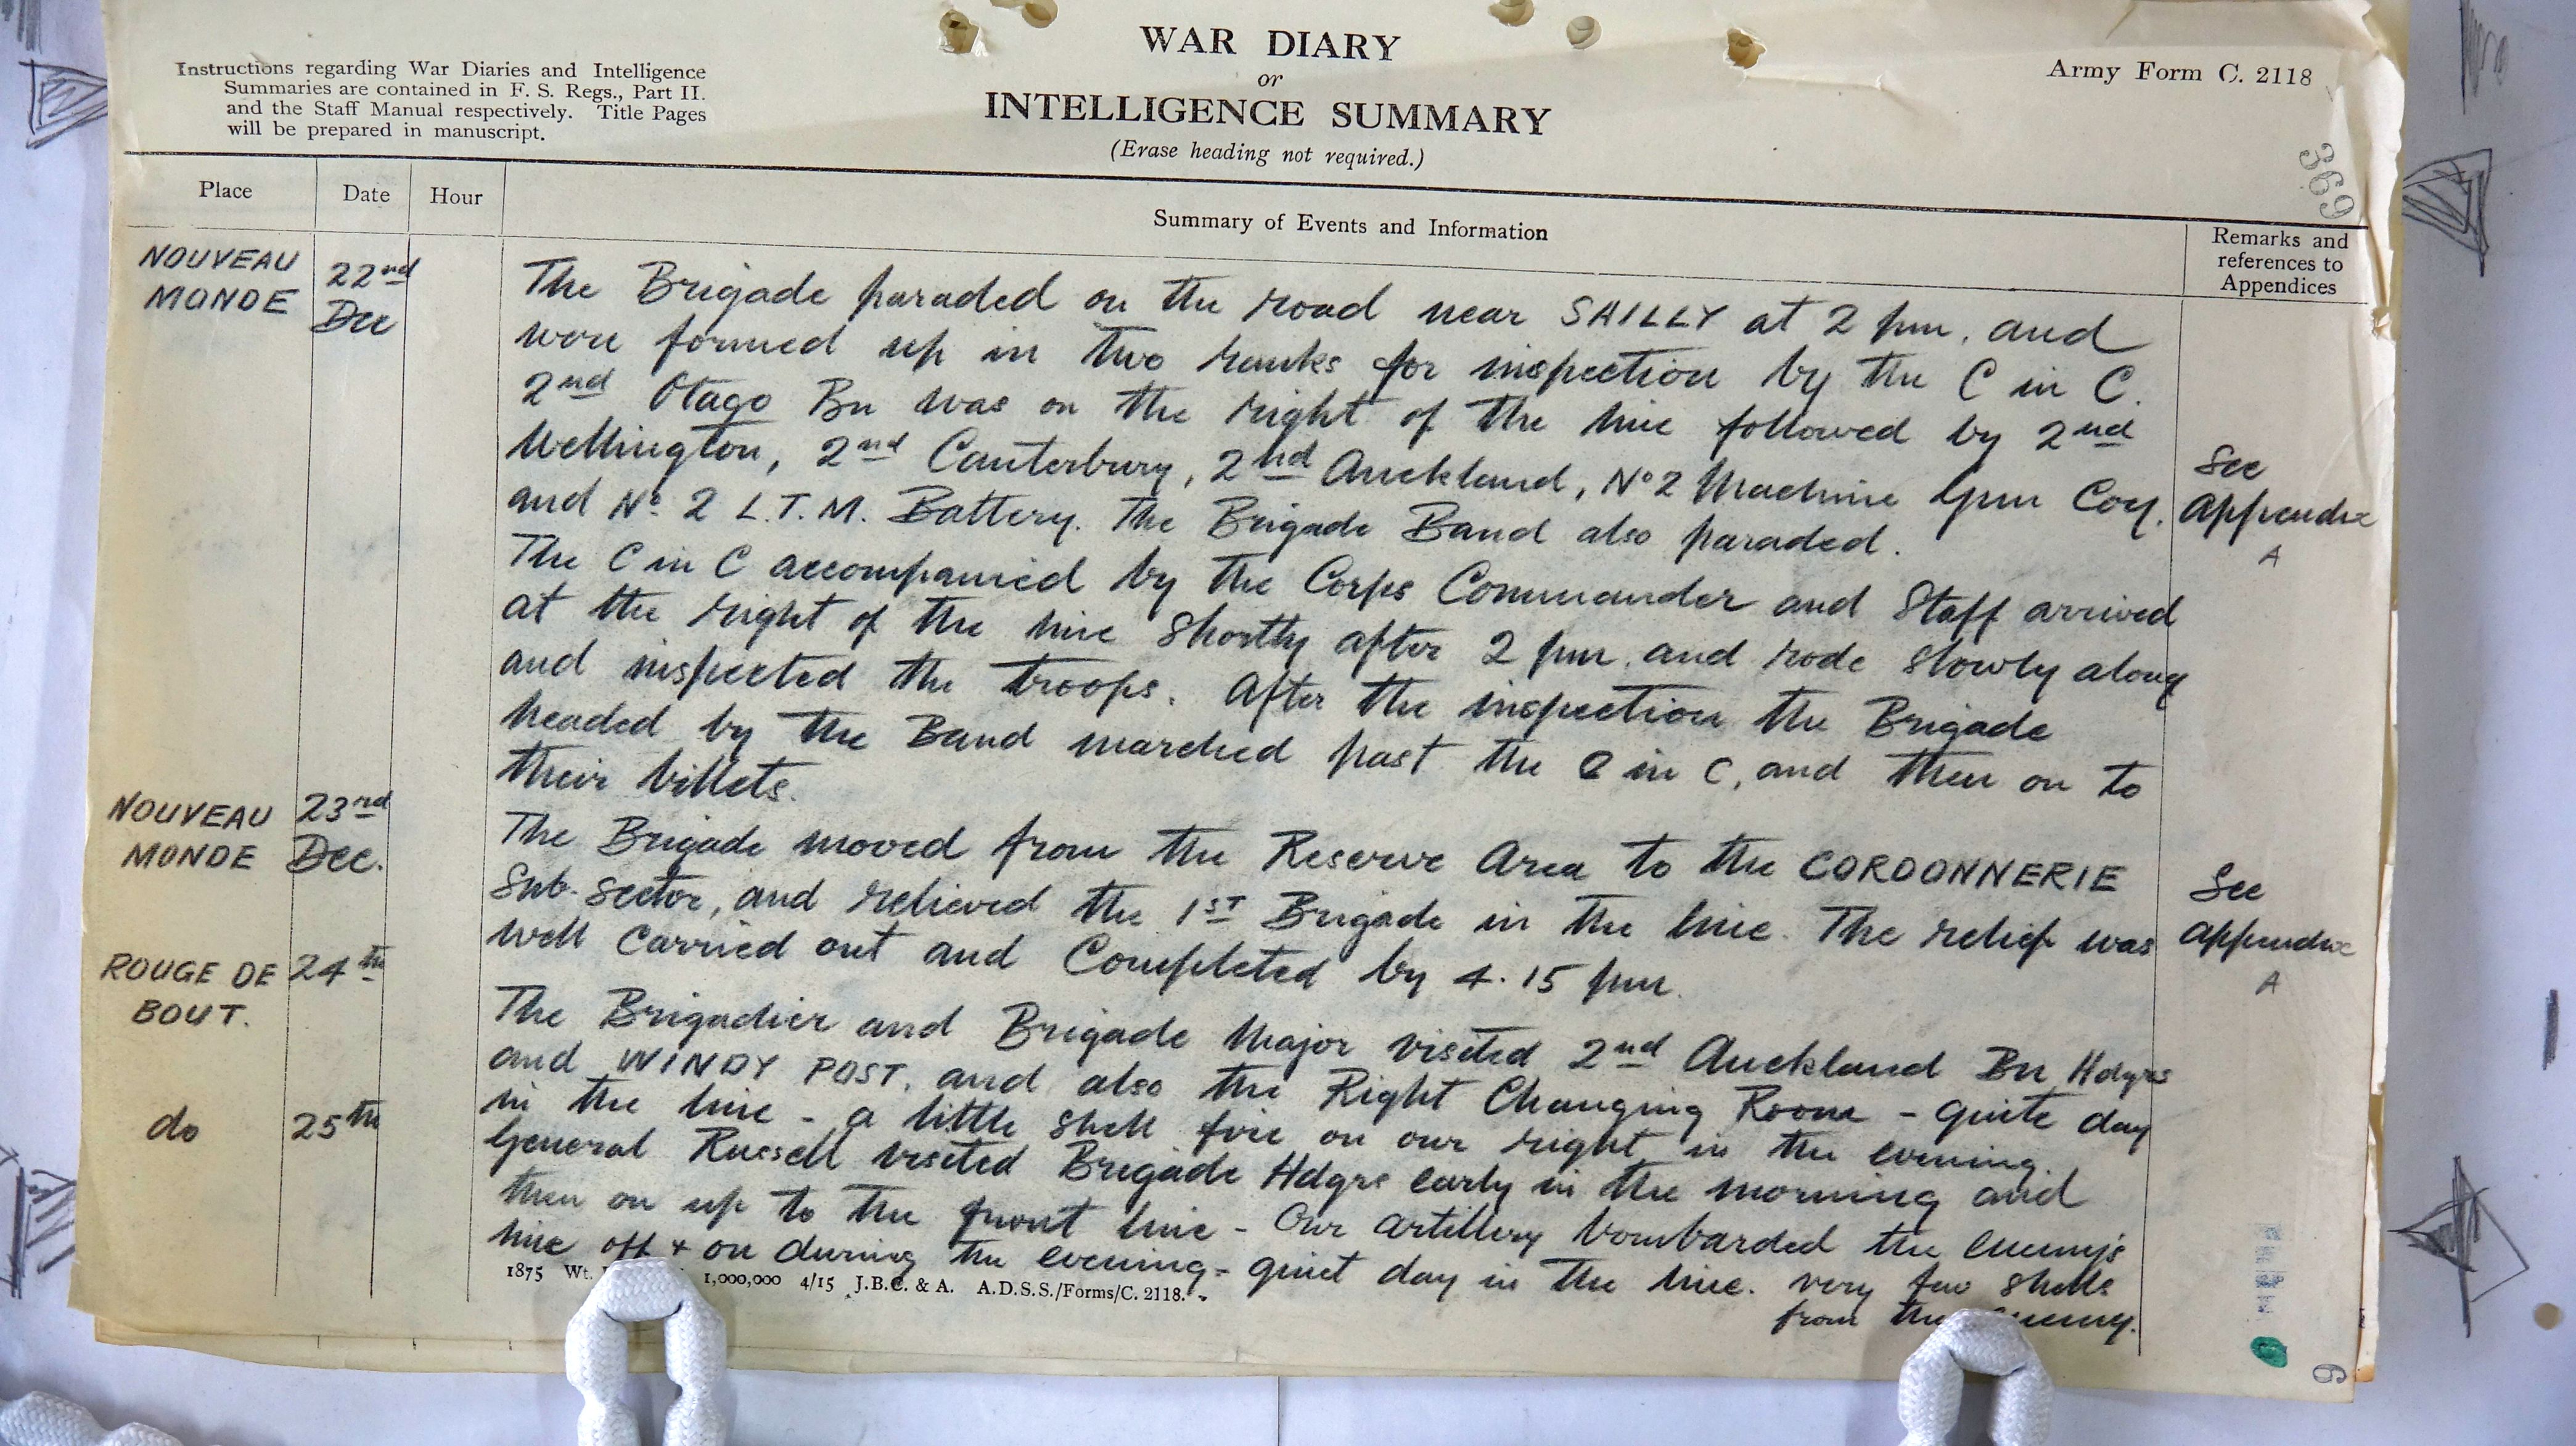 WAR DIARY
or
INTELLIGENCE SUMMARY
(Erase heading not required.)
Instructions regarding War Diaries and Intelligence
Summaries are contained in F. S. Regs., Part II.
and the Staff Manual respectively. Title Pages
will be prepared in manuscript.
Army Form C. 2118
369
Place
Date
Hour
Summary of Events and Information
Remarks and
references to
Appendices
NOUVEAU
MONDE
22nd
Dec
The Brigade paraded on the road near SAILLY at 2 pm, and
were formed up in two ranks for inspection by the C in C.
2nd Otago Bn was on the right of the line followed by 2nd
Wellington, 2nd Canterbury, 2nd Auckland, No 2 Machine Gun Coy.
and No. 2 L.T.M. Battery. The Brigade Band also paraded.
See
Appendix
A
The C in C accompanied by the Corps Commander and Staff arrived
at the right of the line shortly after 2 pm. and rode slowly along
and inspected the troops. After the inspection the Brigade
headed by the Band marched past the C in C, and then on to
their billets.
NOUVEAU
MONDE
23rd
Dec.
The Brigade moved from the Reserve Area to the CORDONNERIE
Sub-sector, and relieved the 1ST Brigade in the line. The relief was
well carried out and completed by 4.15 pm.
See
Appendix
A
ROUGE DE
BOUT.
24th
The Brigadier and Brigade Major visited 2nd Auckland Bn Hdqrs
and WINDY POST, and also the Right Changing Room - quite day
in the line - a little shell fire on our right in the evening.
do
25th
General Russell visited Brigade Hdqrs early in the morning and
then on up to the front line - Our artillery bombarded the enemy's
line off + on during the evening - quiet day in the line. very few shells
from the enemy.
1875 Wt. 1,000,000 4/15 J.B.C. & A. A.D.S.S./Forms/C. 2118.
9